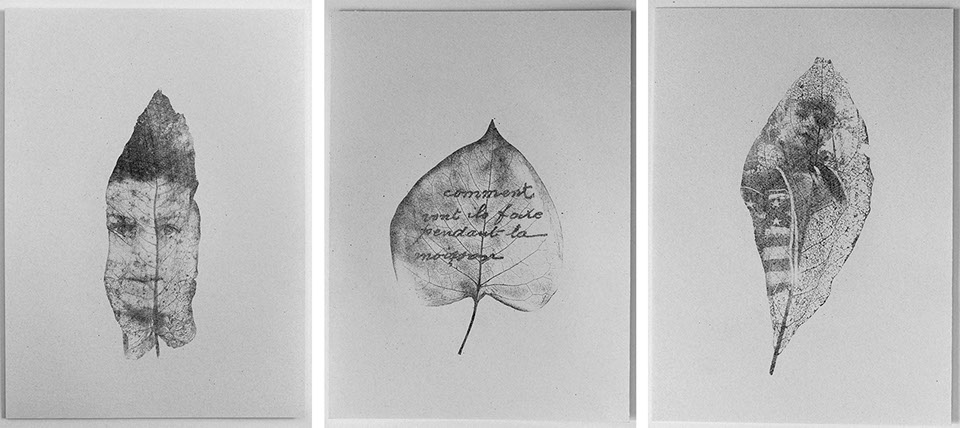 comment
vont ils faire
pendant la
moisson